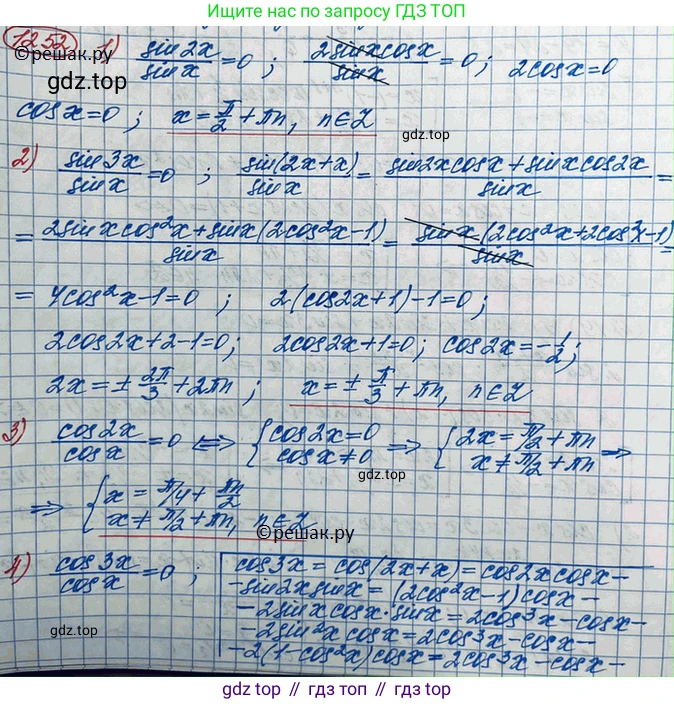 Ищите по запросу ГДЗ ТОП
12.52 1) sin2x/sinx=0; 2sinxcosx/sinx=0; 2cosx=0
©решак.ру
gdz.top
cosx=0; x=π/2+πn, n∈Z
gdz.top
2) sin3x/sinx=0; sin(2x+x)/sinx=(sin2xcosx+sinxcos2x)/sinx=
=(2sinxcos²x+sinx(2cos²x-1))/sinx=sinx(2cos²x+2cos²x-1)/sinx=
=4cos²x-1=0; 2(cos2x+1)-1=0;
gdz.top
2cos2x+2-1=0; 2cos2x+1=0; cos2x=-1/2;
2x=±2π/3+2πn; x=±π/3+πn, n∈Z
gdz.top
3) cos2x/cosx=0 ⇔ {cos2x=0 cosx≠0 ⇒ {2x=π/2+πn x≠π/2+πn ⇒
⇒ {x=π/4+πn/2 x≠π/2+πn, n∈Z
©решак.ру
4) cos3x/cosx=0; cos3x=cos(2x+x)=cos2xcosx-
-sin2xsinx=(2cos²x-1)cosx-
-2sinxcosx·sinx=2cos³x-cosx-
gdz.top
-2sin²xcosx=2cos³x-cosx-
gdz.top
-2(1-cos²x)cosx=2cos³x-cosx-
gdz.top // гдз.топ // gdz.top